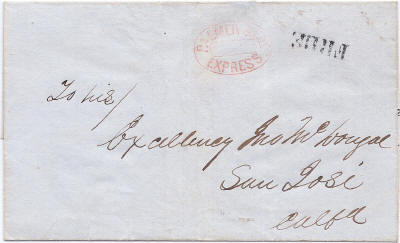 EXPRESS
To his/
Excellency Jno McDougal
San José
Calfa